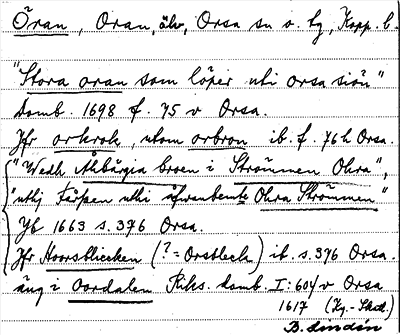 Öran, Oran, älv, Orsa sn o. tg, Kopp. l.
"Stora oran som löper uti orsa siön"
Domb. 1698 f. 75 v Orsa.
Jfr orkrok, utom orbron ib. f. 76 h Orsa.
"Wedh Åbärgia broen i Strömmen Ohra",
"uthj Elfwen uthi öfvanbemte Ohra Strömmen"
Yb 1663 s. 376 Orsa.
Jfr Hoorsblecken (? = Orsbleck) ib. s. 376 Orsa.
äng i Oordalen Riks. domb. I: 604 v Orsa
1617 (Kg.-Skd.)
B. Lindén